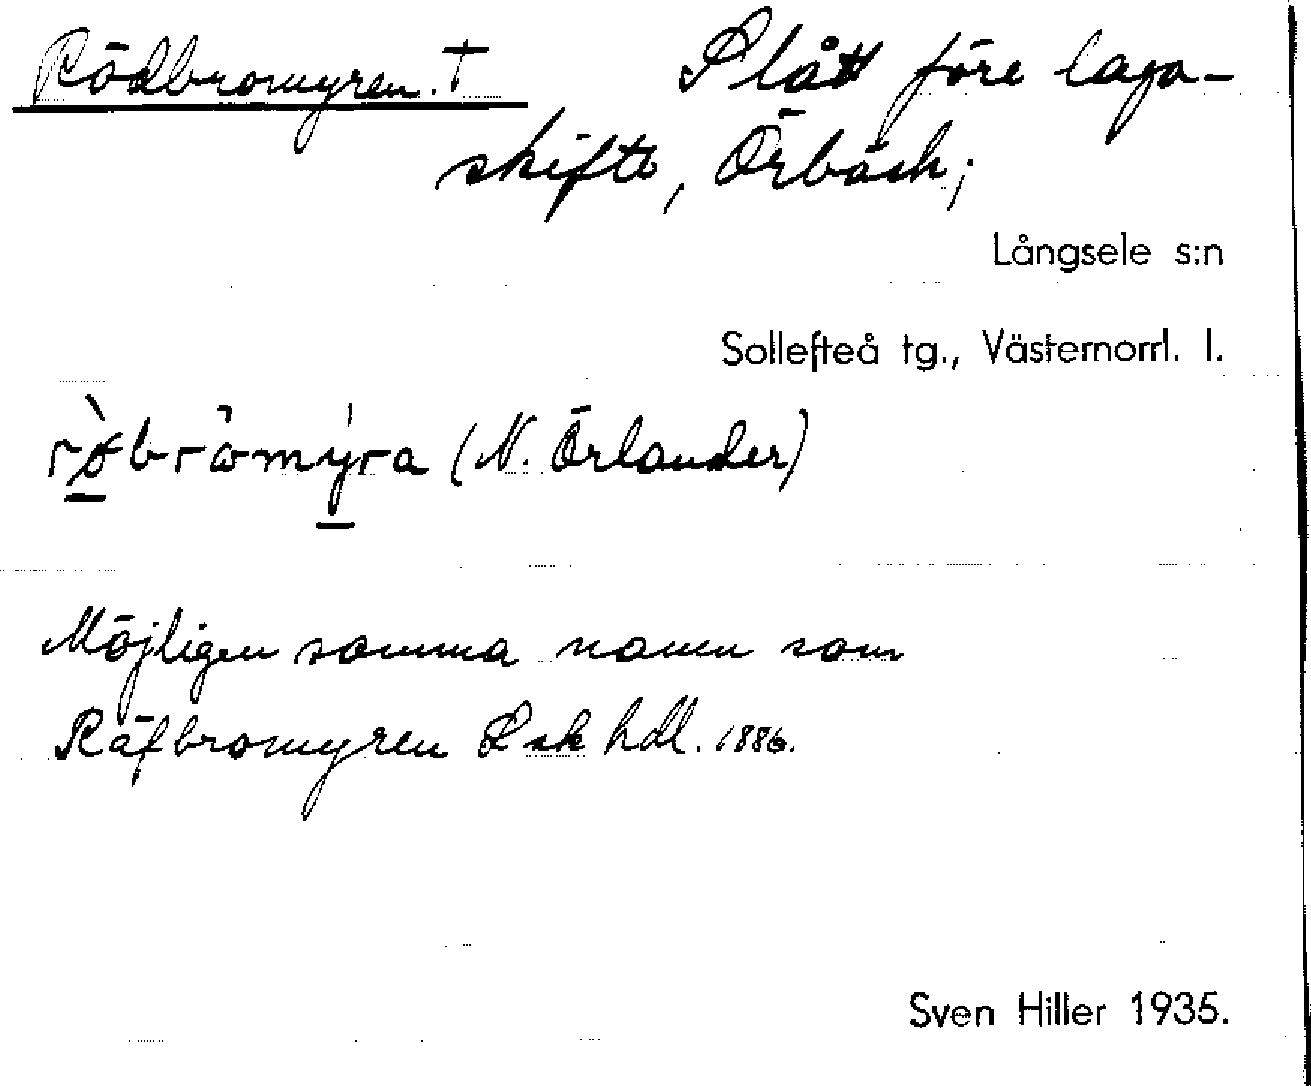 Rödbromyren. † Slått före laga-
skifte, Örbäck;
Långsele s:n
Sollefteå tg., Västernorrl. l.
(N. Örlander)
Möjligen samma namn som
Räfbromyren Lsk hdl. 1886.
Sven Hiller 1935.